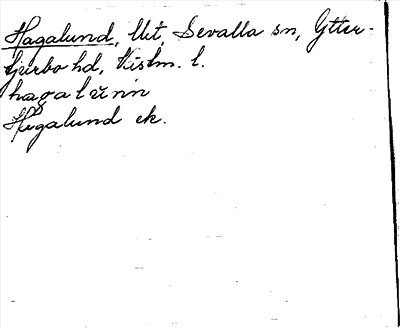 Hagalund, Ut, Sevalla sn, Ytter-
tjurbo hd, Västm. l.
hagalunn
Hagalund ek.